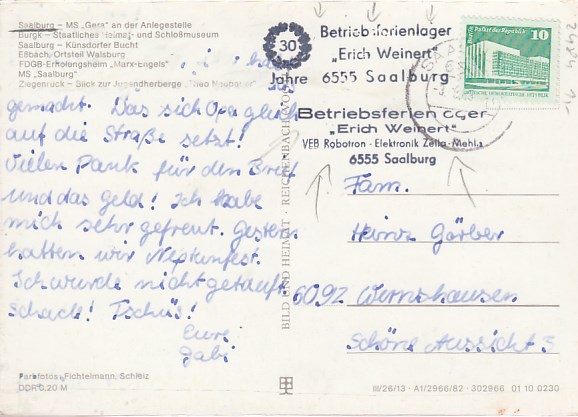 Saalburg – MS „Gera" an der Anlegestelle
Burgk – Staatliches Heimat- und Schloßmuseum
Saalburg – Künsdorfer Bucht
Eßbach, Ortsteil Walsburg
FDGB-Erholungsheim „Marx-Engels"
MS „Saalburg"
Ziegenrück – Blick zur Jugendherberge „Theo Neubauer"
gemacht. Das sich Opa gleich
auf die Straße setzt!
Vielen Dank für den Brief
und das Geld! Ich habe
mich sehr gefreut. Gestern
hatten wir Neptunfest.
Ich wurde nicht getauft.
Schade! Tschüß!
Eure
Gabi
Farbfotos: Fichtelmann, Schleiz
DDR 0,20 M
BILD UND HEIMAT · REICHENBACH
30
Jahre
Betriebsferienlager
„Erich Weinert"
6555 Saalburg
10
Betriebsferienlager
"Erich Weinert"
VEB Robotron - Elektronik Zella-Mehlis
6555 Saalburg
Fam.
Heinz Gärber
6092 Wernshausen
Schöne Aussicht 3
III/26/13 · A1/2966/82 · 302966 01 10 0230